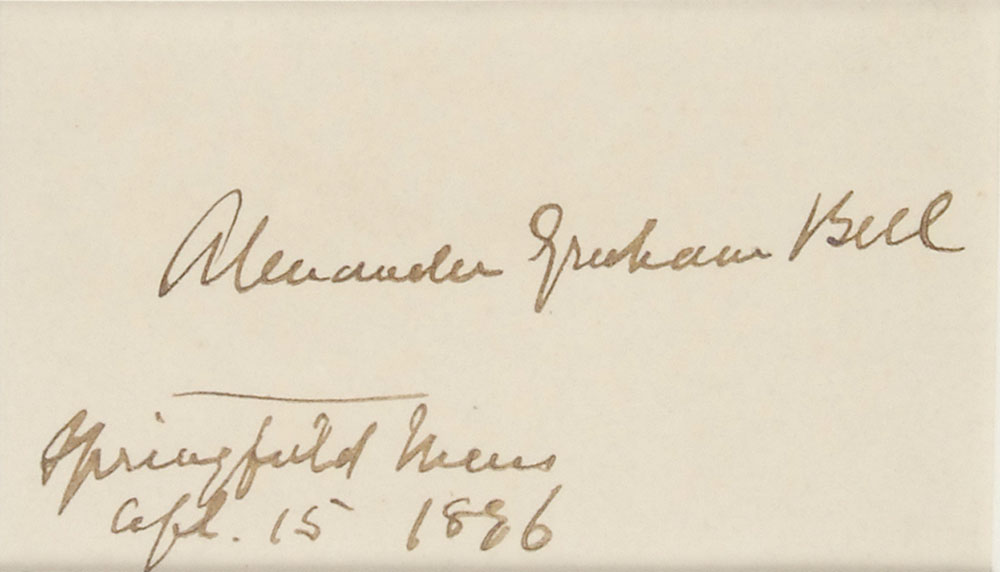 Alexander Graham Bell
Springfield Mass
Apl. 15 1896